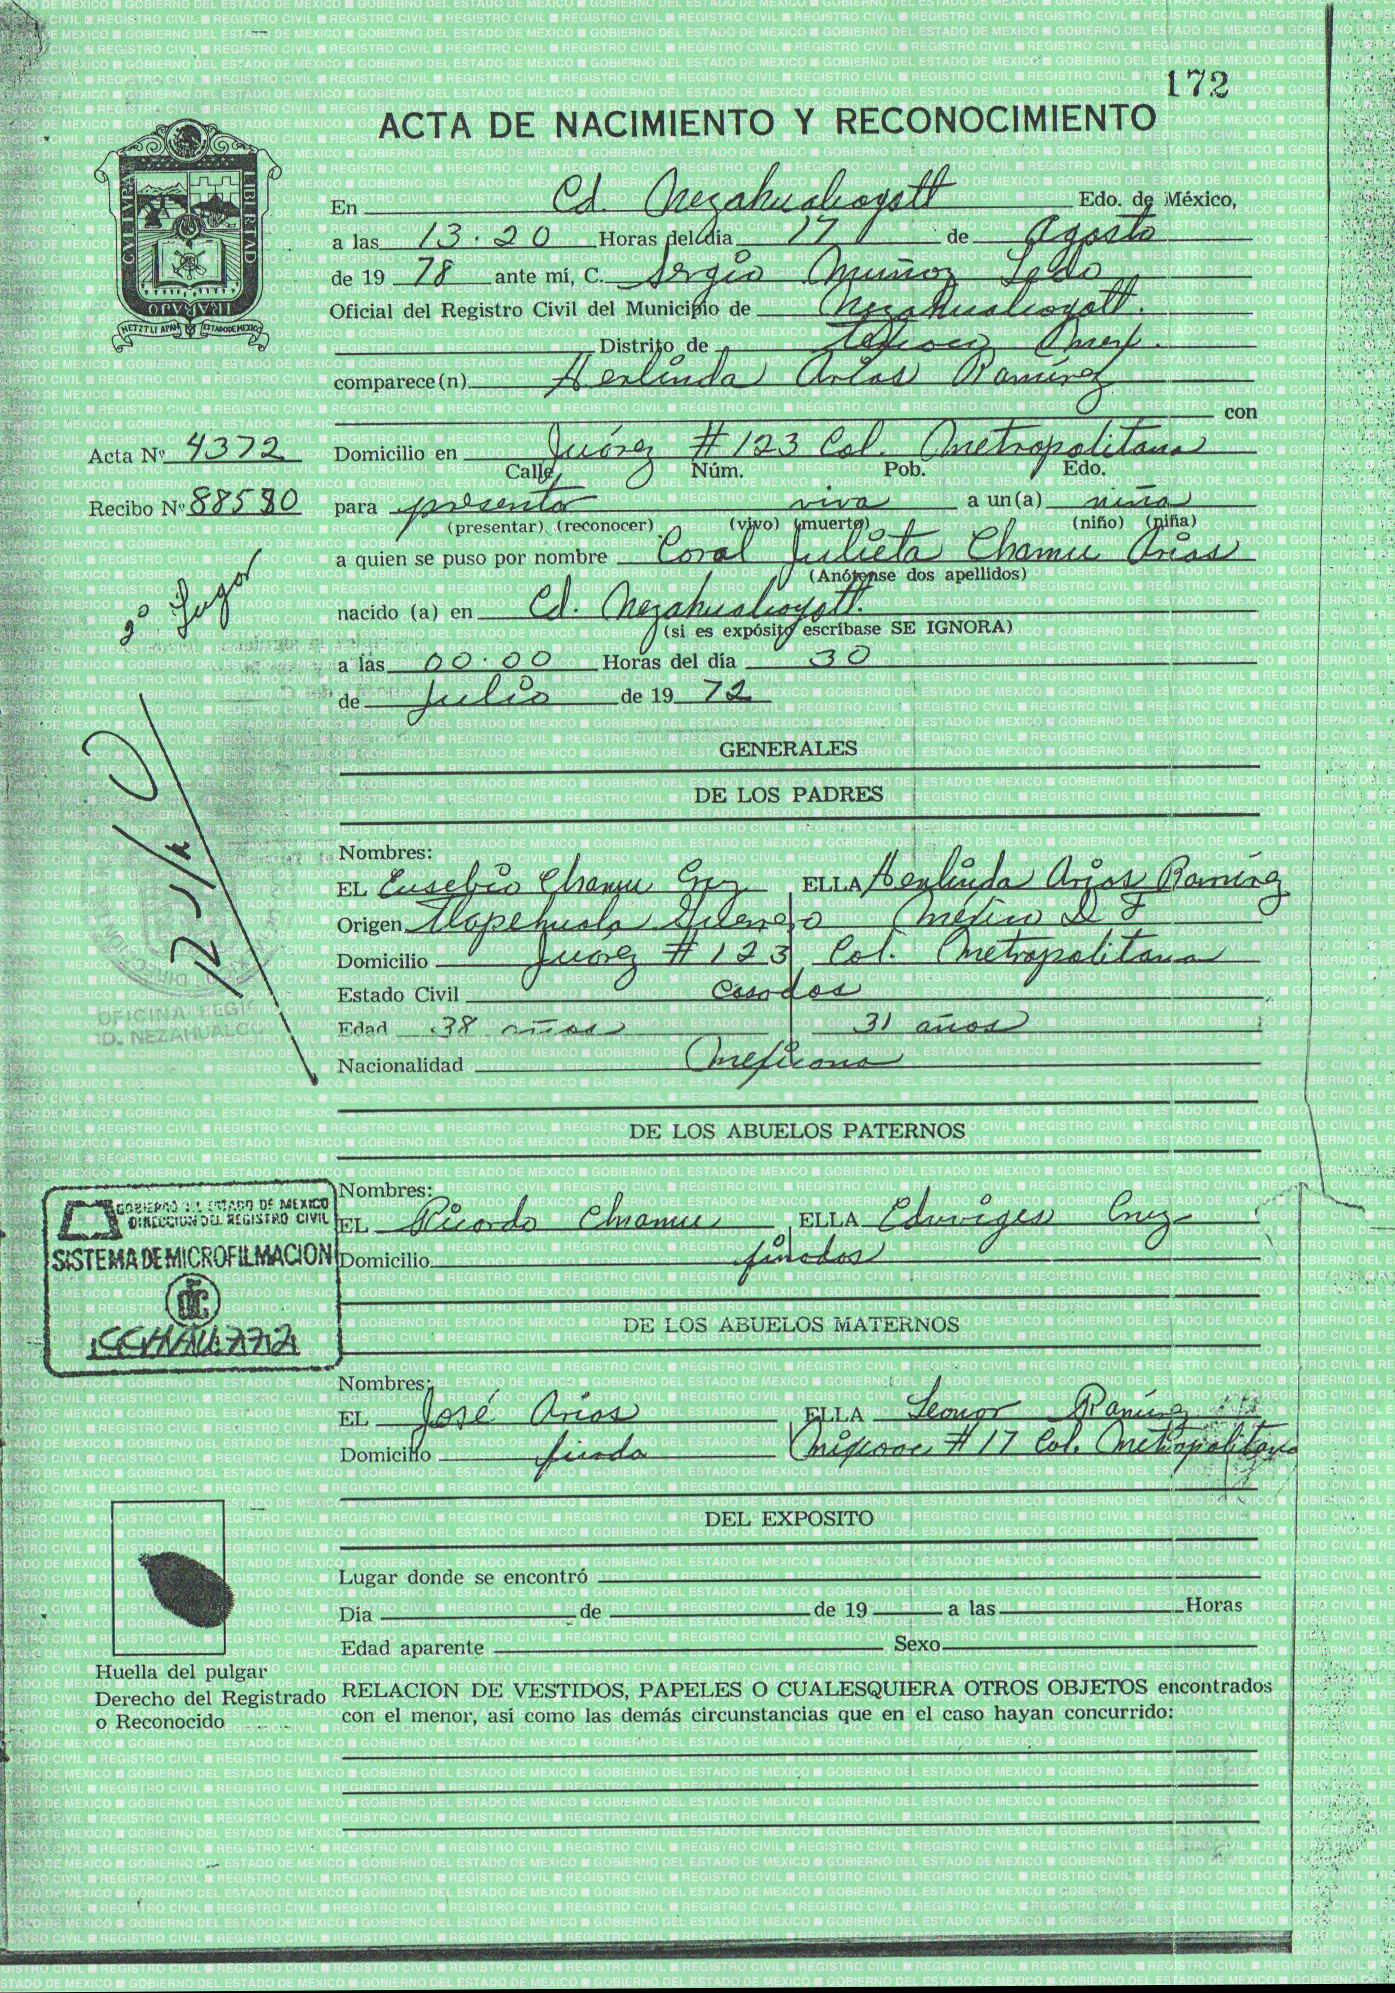 172
ACTA DE NACIMIENTO Y RECONOCIMIENTO
CULTURA LIBERTAD TRABAJO
En Cd. Nezahualcoyotl Edo. de México,
a las 13.20 Horas del día 17 de Agosto
de 19 78 ante mí, C. Sergio Muñoz Ledo
Oficial del Registro Civil del Municipio de Nezahualcoyotl.
Distrito de Mex.
comparece(n) Herlinda Arias Ramírez
con
Acta Nº 4372 Domicilio en Juárez # 123 Col. Metropolitana
Calle, Núm. Pob. Edo.
Recibo Nº 88580 para presentar viva a un(a) niña
(presentar) (reconocer) (vivo) (muerto) (niño) (niña)
a quien se puso por nombre Coral Julieta Chamu Arias
(Anótense dos apellidos)
2º Lugar
nacido (a) en Cd. Nezahualcoyotl.
(si es expósito escríbase SE IGNORA)
a las 00.00 Horas del día 30
de Julio de 19 72
GENERALES
DE LOS PADRES
Nombres:
EL Eusebio Chamu Cruz ELLA Herlinda Arias Ramírez
Origen Tlapehuala Guerrero México D F
Domicilio Juárez # 123 Col. Metropolitana
Estado Civil Casados
OFICINA
D. NEZAHUALCO
Edad 38 años 31 años
Nacionalidad Mexicana
DE LOS ABUELOS PATERNOS
GOBIERNO DEL ESTADO DE MEXICO
DIRECCION DEL REGISTRO CIVIL
SISTEMA DE MICROFILMACION
Nombres:
EL Ricardo Chamu ELLA Eduviges Cruz
Domicilio finados
DE LOS ABUELOS MATERNOS
Nombres:
EL José Arias ELLA Leonor Ramírez
Domicilio finado Mixcoac # 17 Col. Metropolitana
DEL EXPOSITO
Lugar donde se encontró
Dia de de 19 a las Horas
Edad aparente Sexo
Huella del pulgar
Derecho del Registrado
o Reconocido
RELACION DE VESTIDOS, PAPELES O CUALESQUIERA OTROS OBJETOS encontrados
con el menor, así como las demás circunstancias que en el caso hayan concurrido: